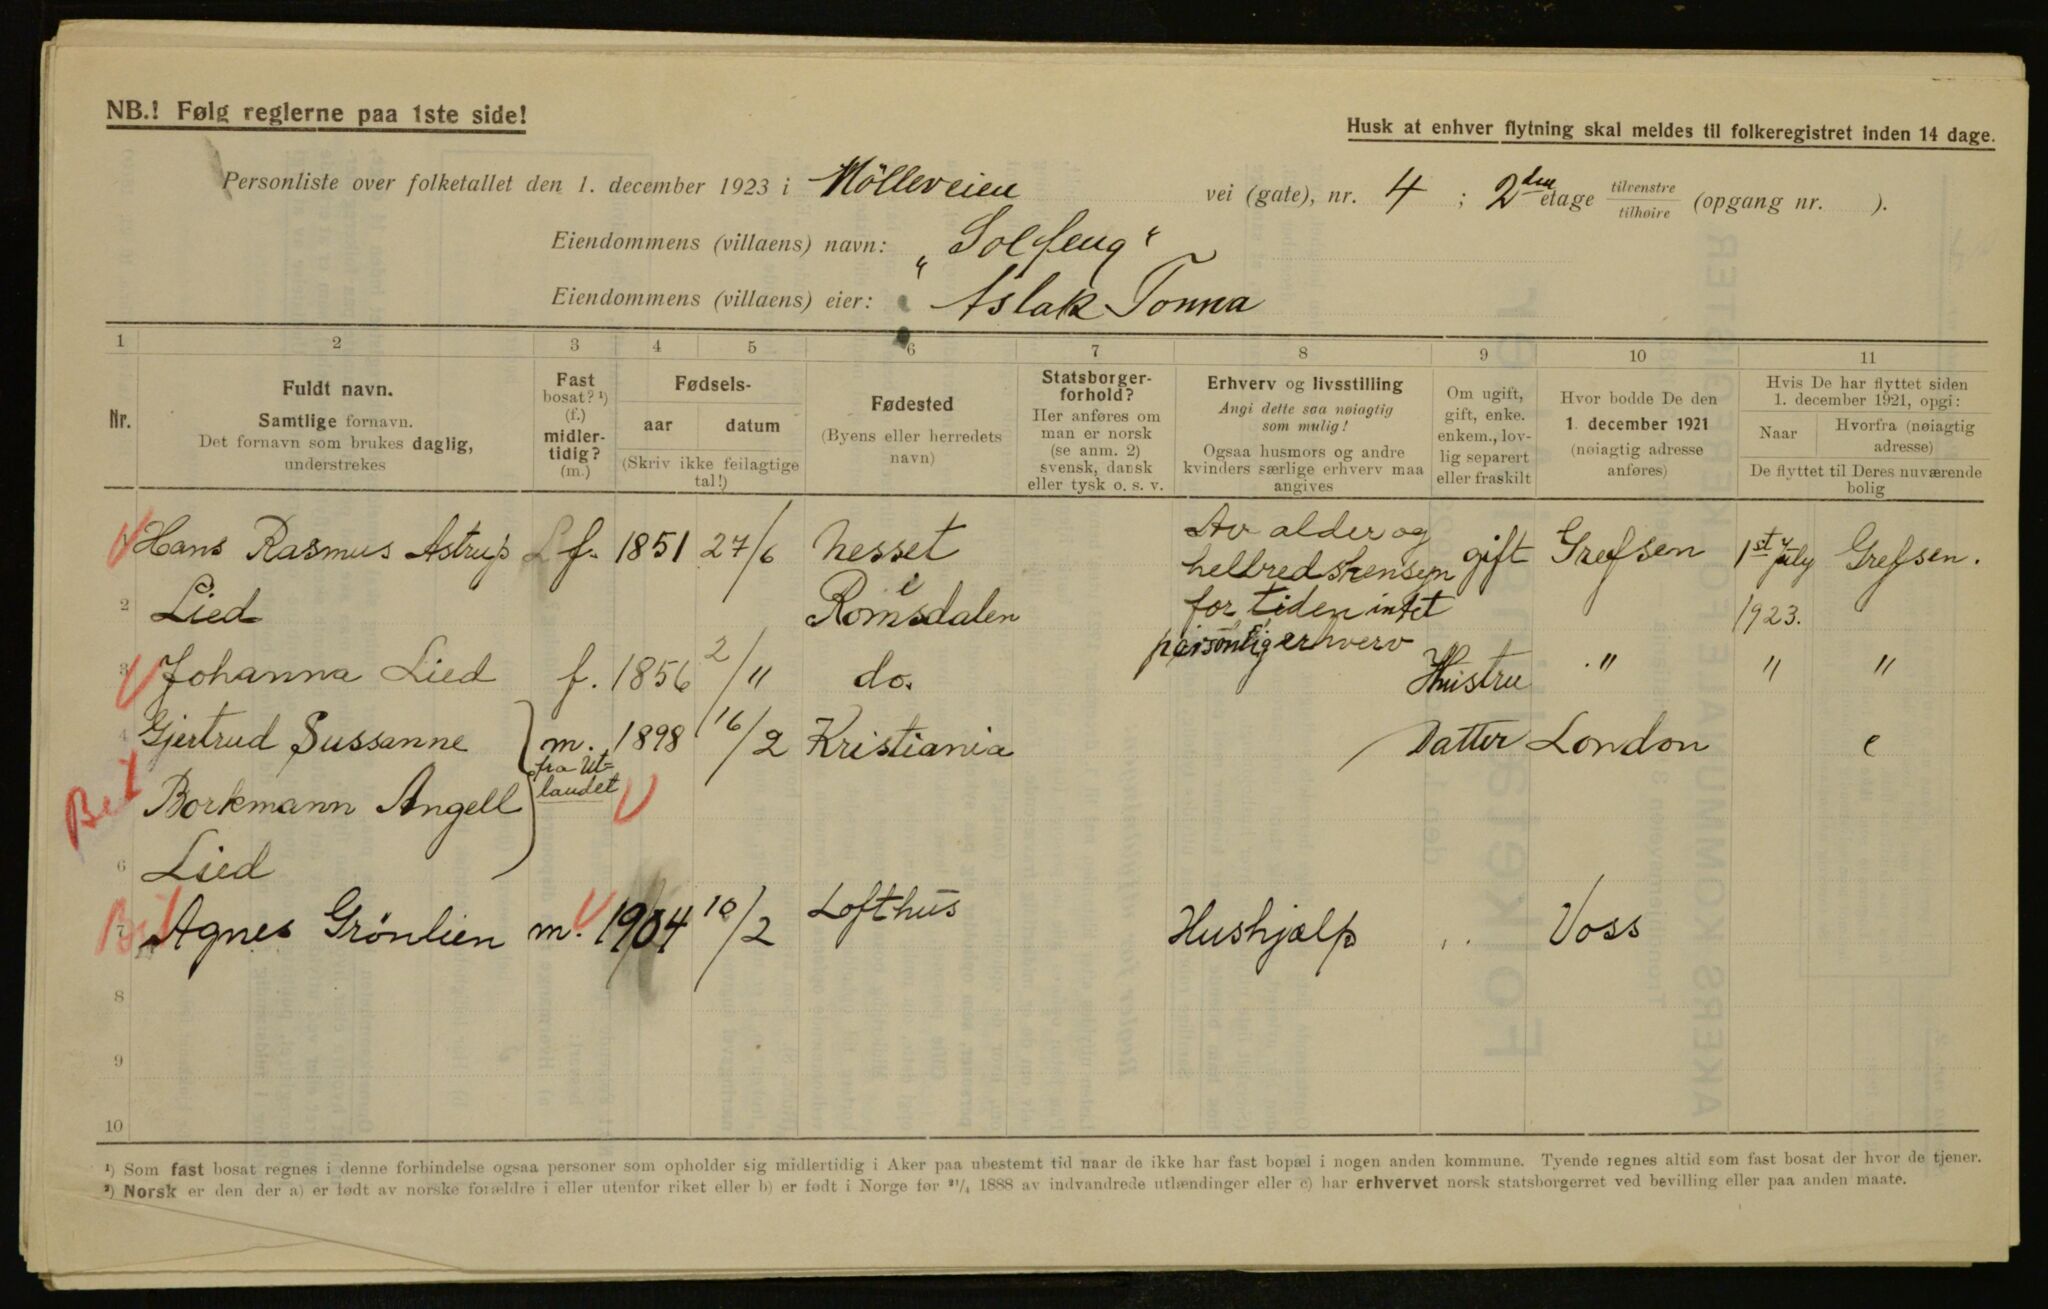 NB.! Følg reglerne paa 1ste side!
Husk at enhver flytning skal meldes til folkeregistret inden 14 dage.
Personliste over folketallet den 1. december 1923 i Mölleveien vei (gate), nr. 4 ; 2den etage tilvenstre/tilhøire (opgang nr. ).
Eiendommens (villaens) navn: „Solfeng“
Eiendommens (villaens) eier: Aslak Tonna
1 2 3 4 5 6 7 8 9 10 11
Nr.
Fuldt navn.
Samtlige fornavn.
Det fornavn som brukes daglig,
understrekes
Fast
bosat? ¹)
(f.)
midler-
tidig?
(m.)
Fødsels-
aar datum
(Skriv ikke feilagtige
tal!)
Fødested
(Byens eller herredets
navn)
Statsborger-
forhold?
Her anføres om
man er norsk
(se anm. 2)
svensk, dansk
eller tysk o. s. v.
Erhverv og livsstilling
Angi dette saa nøiagtig
som mulig!
Ogsaa husmors og andre
kvinders særlige erhverv maa
angives
Om ugift,
gift, enke.
enkem., lov-
lig separert
eller fraskilt
Hvor bodde De den
1. december 1921
(nøiagtig adresse
anføres)
Hvis De har flyttet siden
1. december 1921, opgi:
Naar
Hvorfra (nøiagtig
adresse)
De flyttet til Deres nuværende
bolig
Hans Rasmus Astrup f. 1851 27/6 Nesset Av alder og gift Grefsen 1st July Grefsen.
helbredshensyn
2 Lied i Romsdalen for tiden intet 1923.
personlig erhverv
3 Johanna Lied f. 1856 2/11 do. Hustru " " "
4 Gjertrud Sussanne m. 1898 16/2 Kristiania Datter London
fra Ut=
landet
Bet Borkmann Angell
6 Lied
Bet 7 Agnes Grönlien m. 1904 10/2 Lofthus Hushjælp Voss
8
9
10
¹) Som fast bosat regnes i denne forbindelse ogsaa personer som opholder sig midlertidig i Aker paa ubestemt tid naar de ikke har fast bopæl i nogen anden kommune. Tyende regnes altid som fast bosat der hvor de tjener.
²) Norsk er den der a) er født av norske forældre i eller utenfor riket eller b) er født i Norge før ²¹/₄ 1888 av indvandrede utlændinger eller c) har erhvervet norsk statsborgerret ved bevilling eller paa anden maate.